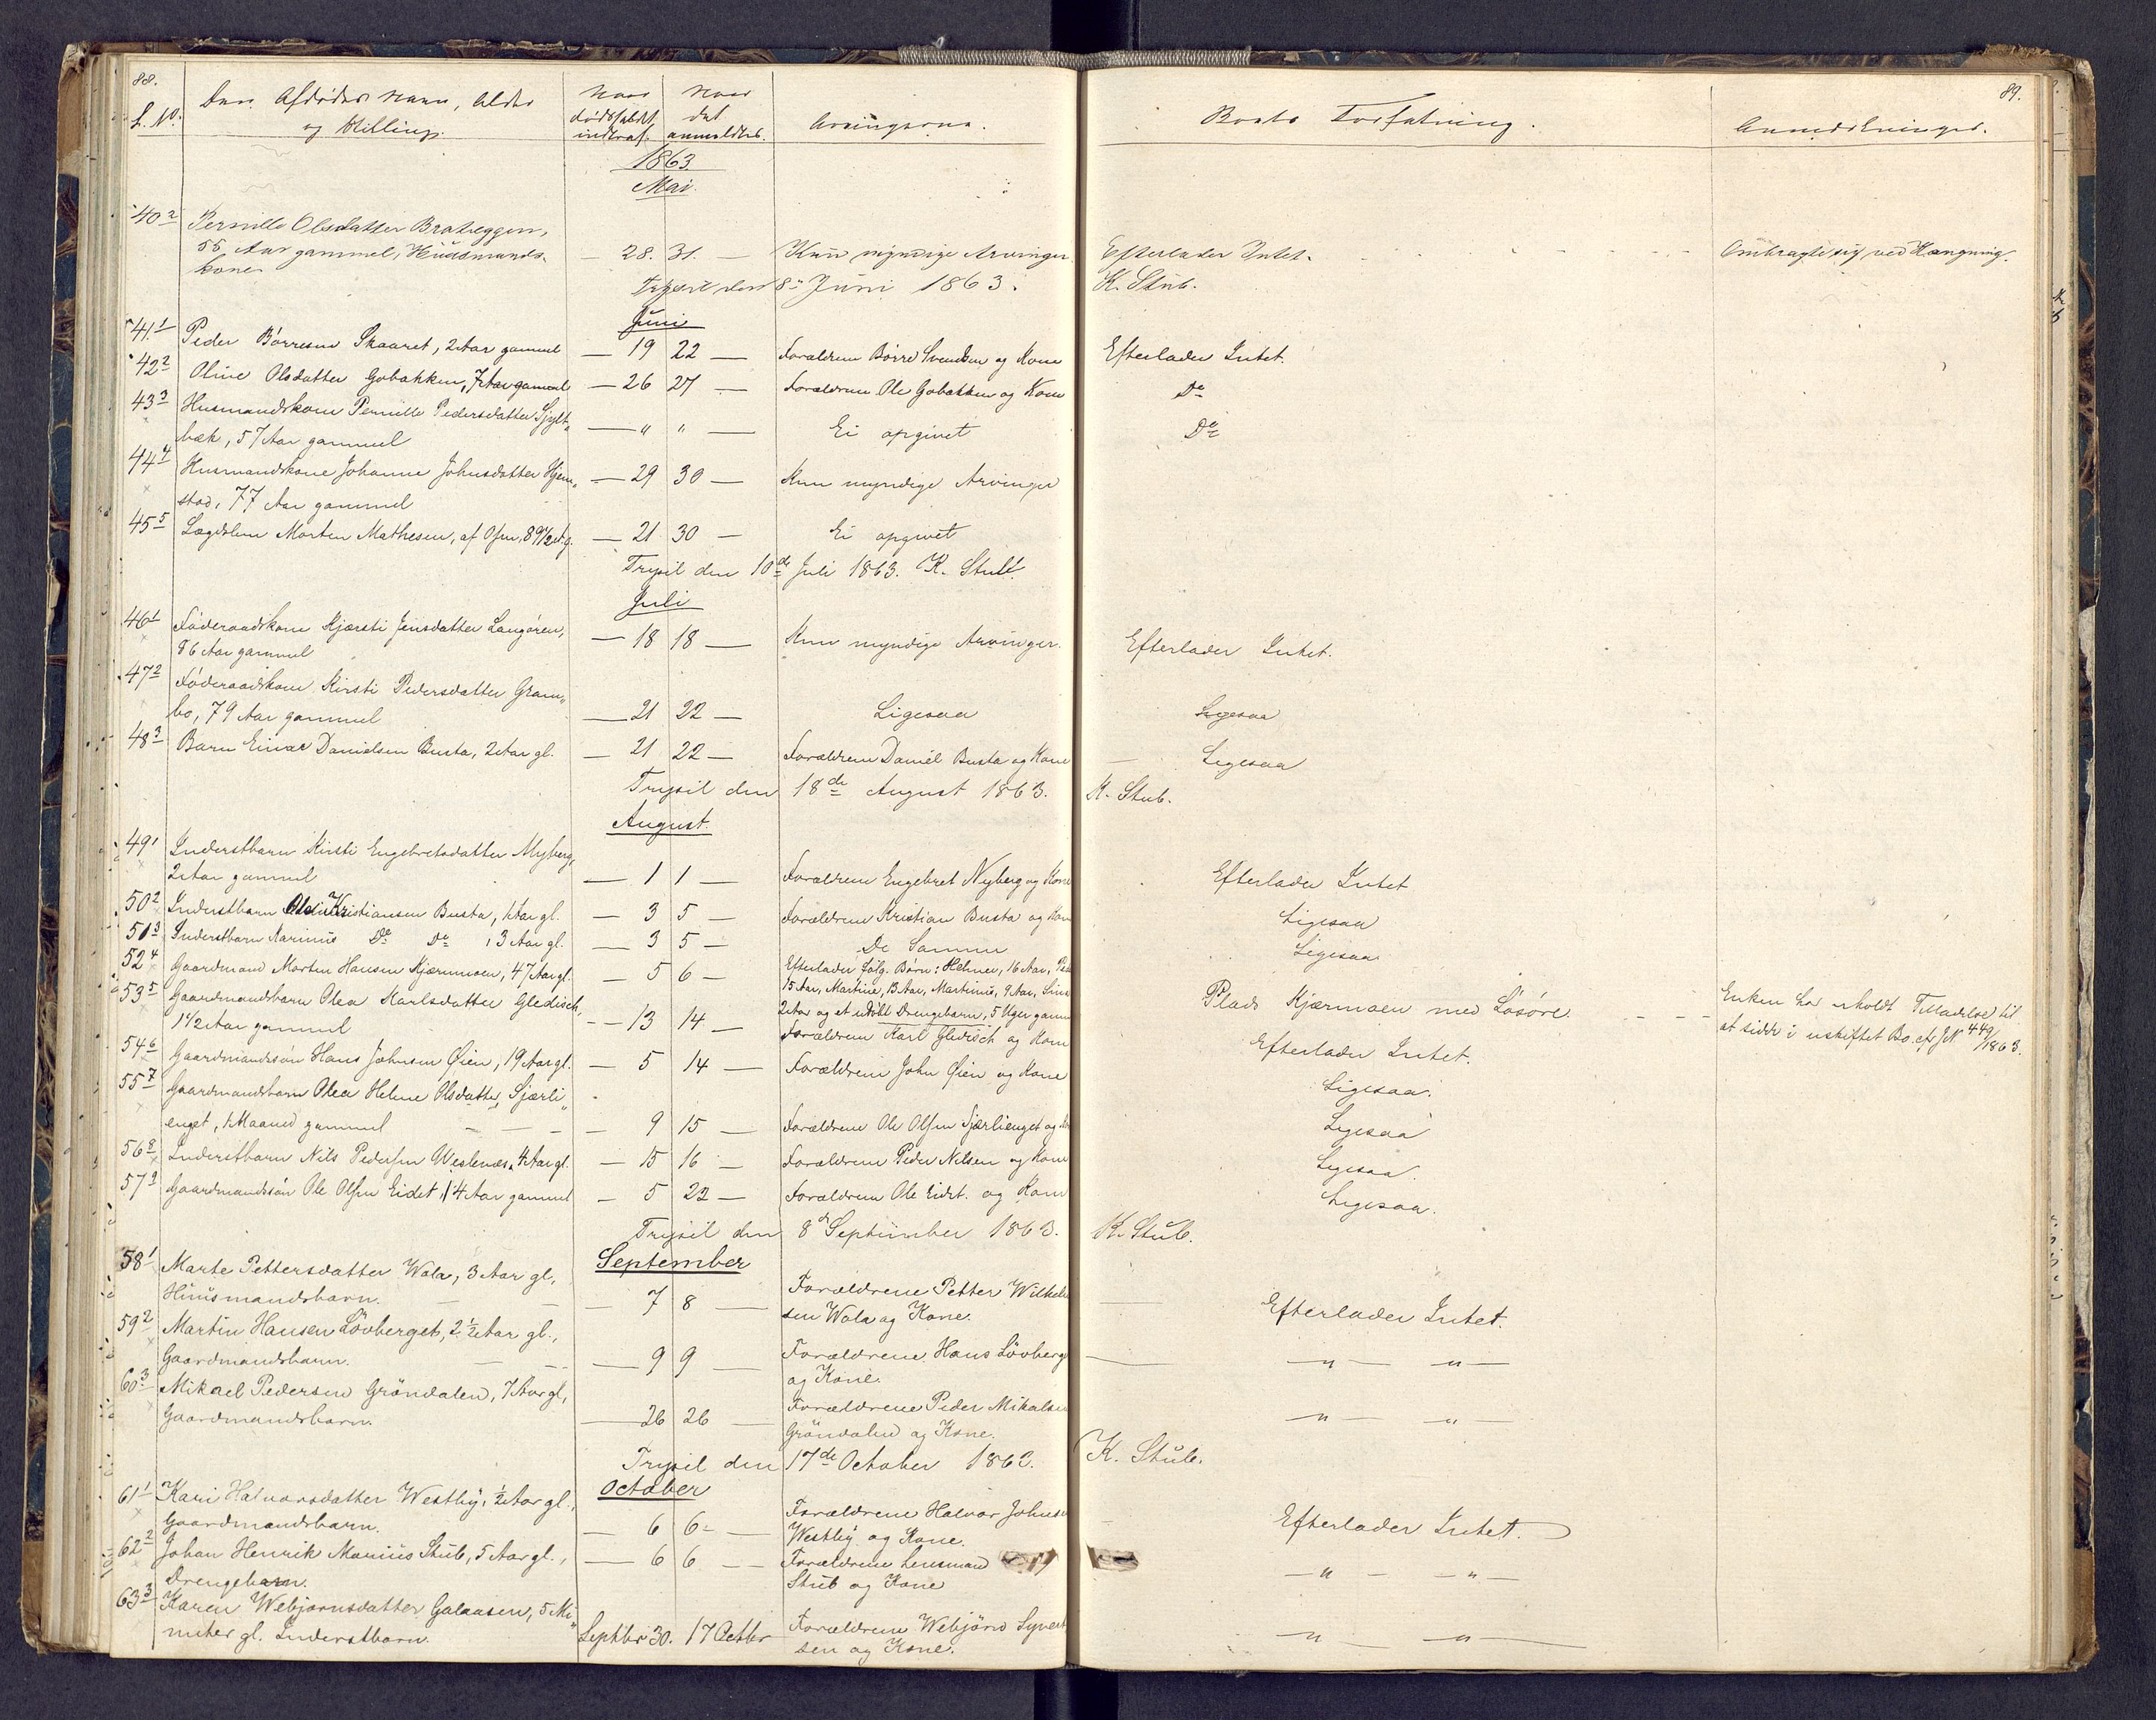 88.
L. No.
Den Afdødes Navn, Alder
og Stilling.
Naar
dødsfaldet
indtraf.
Naar
det
anmeldtes.
Arvingerne.
1863.
Mai.
40 2
Pernille Olsdatter Brateggen,
55 Aar gammel, Huusmands-
kone
— 28. 31. —
Kun myndige Arvinger
Trysil den 8de Juni 1863.
Juni
41 1
Peder Börresen Skaaret, 2 Aar gammel
— 19 22 —
Forældrene Börre Svendsen og Kone
42 2
Oline Olsdatter Gobakken, 7 Aar gammel
— 26 27 —
Forældrene Ole Gobakken og Kone
43 3
Husmandskone Pernille Pedersdatter Sjylt„
bæk, 57 Aar gammel
— " " —
Ei opgivet
44 4
Husmandskone Johanne Johnsdatter Hjem„
stad, 77 Aar gammel
— 29 30 —
Kun myndige Arvinger
45 5
Lægdslem Morten Mathesen, af Osen, 89 1/2 A. g.
— 21 30 —
Ei opgivet
Trysil den 10de Juli 1863. K. Stub.
Juli
46 1
Föderaadskone Kjærsti Jensdatter Langören,
86 Aar gammel
— 18 18 —
Kun myndige Arvinger.
47 2
Föderaadskone Kirsti Pedersdatter Gram„
bo, 79 Aar gammel
— 21 22 —
Ligesaa
48 3
Barn Einar Danielsen Busta, 2 Aar gl.
— 21 22 —
Forældrene Daniel Busta og Kone
Trysil den 18de August 1863.
August.
49 1
Inderstbarn Kirsti Engebretsdatter Nyberg,
2 Aar gammel
— 1 1 —
Forældrene Engebret Nyberg og Kone
50 2
Inderstbarn Kristiansen Busta, 1 Aar gl.
— 3 5 —
Forældrene Kristian Busta og Kone
51 3
Inderstbarn Karinus Do Do, 3 Aar gl.
— 3 5 —
De Samme
52 4
Gaardmand Morten Hansen Kjærnmoen, 47 Aar gl.
— 5 6 —
Efterlader følg. Børn: Helmer, 16 Aar,
15 Aar, Martine, 13 Aar, Martinus, 9 Aar,
2 Aar og et udöbt Drengebarn, 5 Uger gamm
53 5
Gaardmandsbarn Olea Karlsdatter Gledisch,
1 1/2 Aar gammel
— 13 14 —
Forældrene Karl Gledisch og Kone
54 6
Gaardmandssön Hans Johnsen Øien, 19 Aar gl.
— 5 14 —
Forældrene John Øien og Kone
55 7
Gaardmandsbarn Olea Helene Olsdatter, Sjærli„
enget, 1 Maaned gammel
— 9 15 —
Forældrene Ole Olsen Sjærlienget og
56 8
Inderstbarn Nils Pedersen Weslenæs, 4 Aar gl.
— 15 16 —
Forældrene Peder Nilsen og Kone
57 9
Gaardmandssön Ole Olsen Eidet, 14 Aar gammel
— 5 22 —
Forældrene Ole Eidet. og Kone
Trysil den 8de September 1863.
September
58 1
Marte Pettersdatter Wala, 3 Aar gl,
Huusmandsbarn.
— 7 8 —
Forældrene Petter Wilhelm
sen Wala og Kone.
59 2
Martin Hansen Lövberget, 2 1/2 Aar gl.,
Gaardmandsbarn.
— 9 9 —
Forældrene Hans Lövberg
og Kone.
60 3
Mikael Pedersen Gröndalen, 7 Aar gl,
Gaardmandsbarn.
— 26 26 —
Forældrene Peder Mikalsen
Gröndalen og Kone.
Trysil den 17de October 1863.
October
61 1
Kari Halvorsdatter Westby, 1/2 Aar gl.,
Gaardmandsbarn.
— 6 6 —
Forældrene Halvor Johnsen
Westby og Kone.
62 2
Johan Henrik Marius Stub, 5 Aar gl.,
Drengebarn.
— 6 6 —
Forældrene Lensmand
Stub og Kone
63 3
Karen Webjørnsdatter Galaasen, 5 Mi„
nuter gl. Inderstbarn.
Septbr 30. 17 Octbr
Forældrene Webjörn Syvert
sen og Kone.
89.
Boets Forfatning.
Anmærkninger.
Efterlader Intet.
Ombragte sig ved Hængning.
K. Stub.
Efterlader Intet.
Do
Do
Efterlader Intet.
Ligesaa
Ligesaa
K. Stub.
Efterlader Intet
Ligesaa
Ligesaa
Plads Kjærmoen med Lösöre.
Enken har erholdt Tilladelse til
at sidde i uskiftet Bo. cf JN 449/1863.
Efterlader Intet.
Ligesaa.
Ligesaa
Ligesaa.
Ligesaa.
K. Stub.
Efterlader Intet.
— " — — " —
— " — — " —
K. Stub.
Efterlader Intet.
— " — — " —
— " — — " —